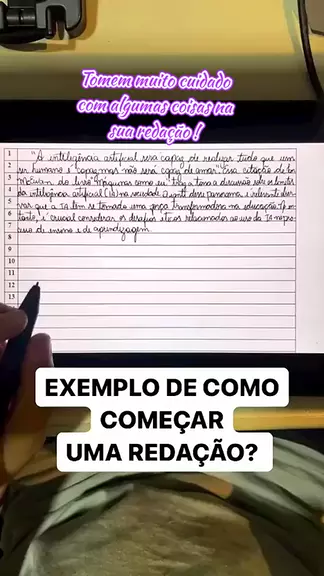 Tomem muito cuidado
com algumas coisas na
sua redação!
1 "A inteligência artificial será capaz de realizar tudo que um
2 ser humano é capaz, mas não será capaz de amar". Essa citação de Ian
3 McEwan do livro "Máquinas como eu" traz a tona a discussão sobre os limites
4 da inteligência artificial (IA) na sociedade. Diante desse panorama, é relevante obser-
5 var que a IA tem se tornado uma força transformadora na educação.
6 é crucial considerar os desafios éticos relacionados ao uso da IA no pro-
7 cesso de ensino e de aprendizagem.
8
9
10
11
12
13
EXEMPLO DE COMO
COMEÇAR
UMA REDAÇÃO?